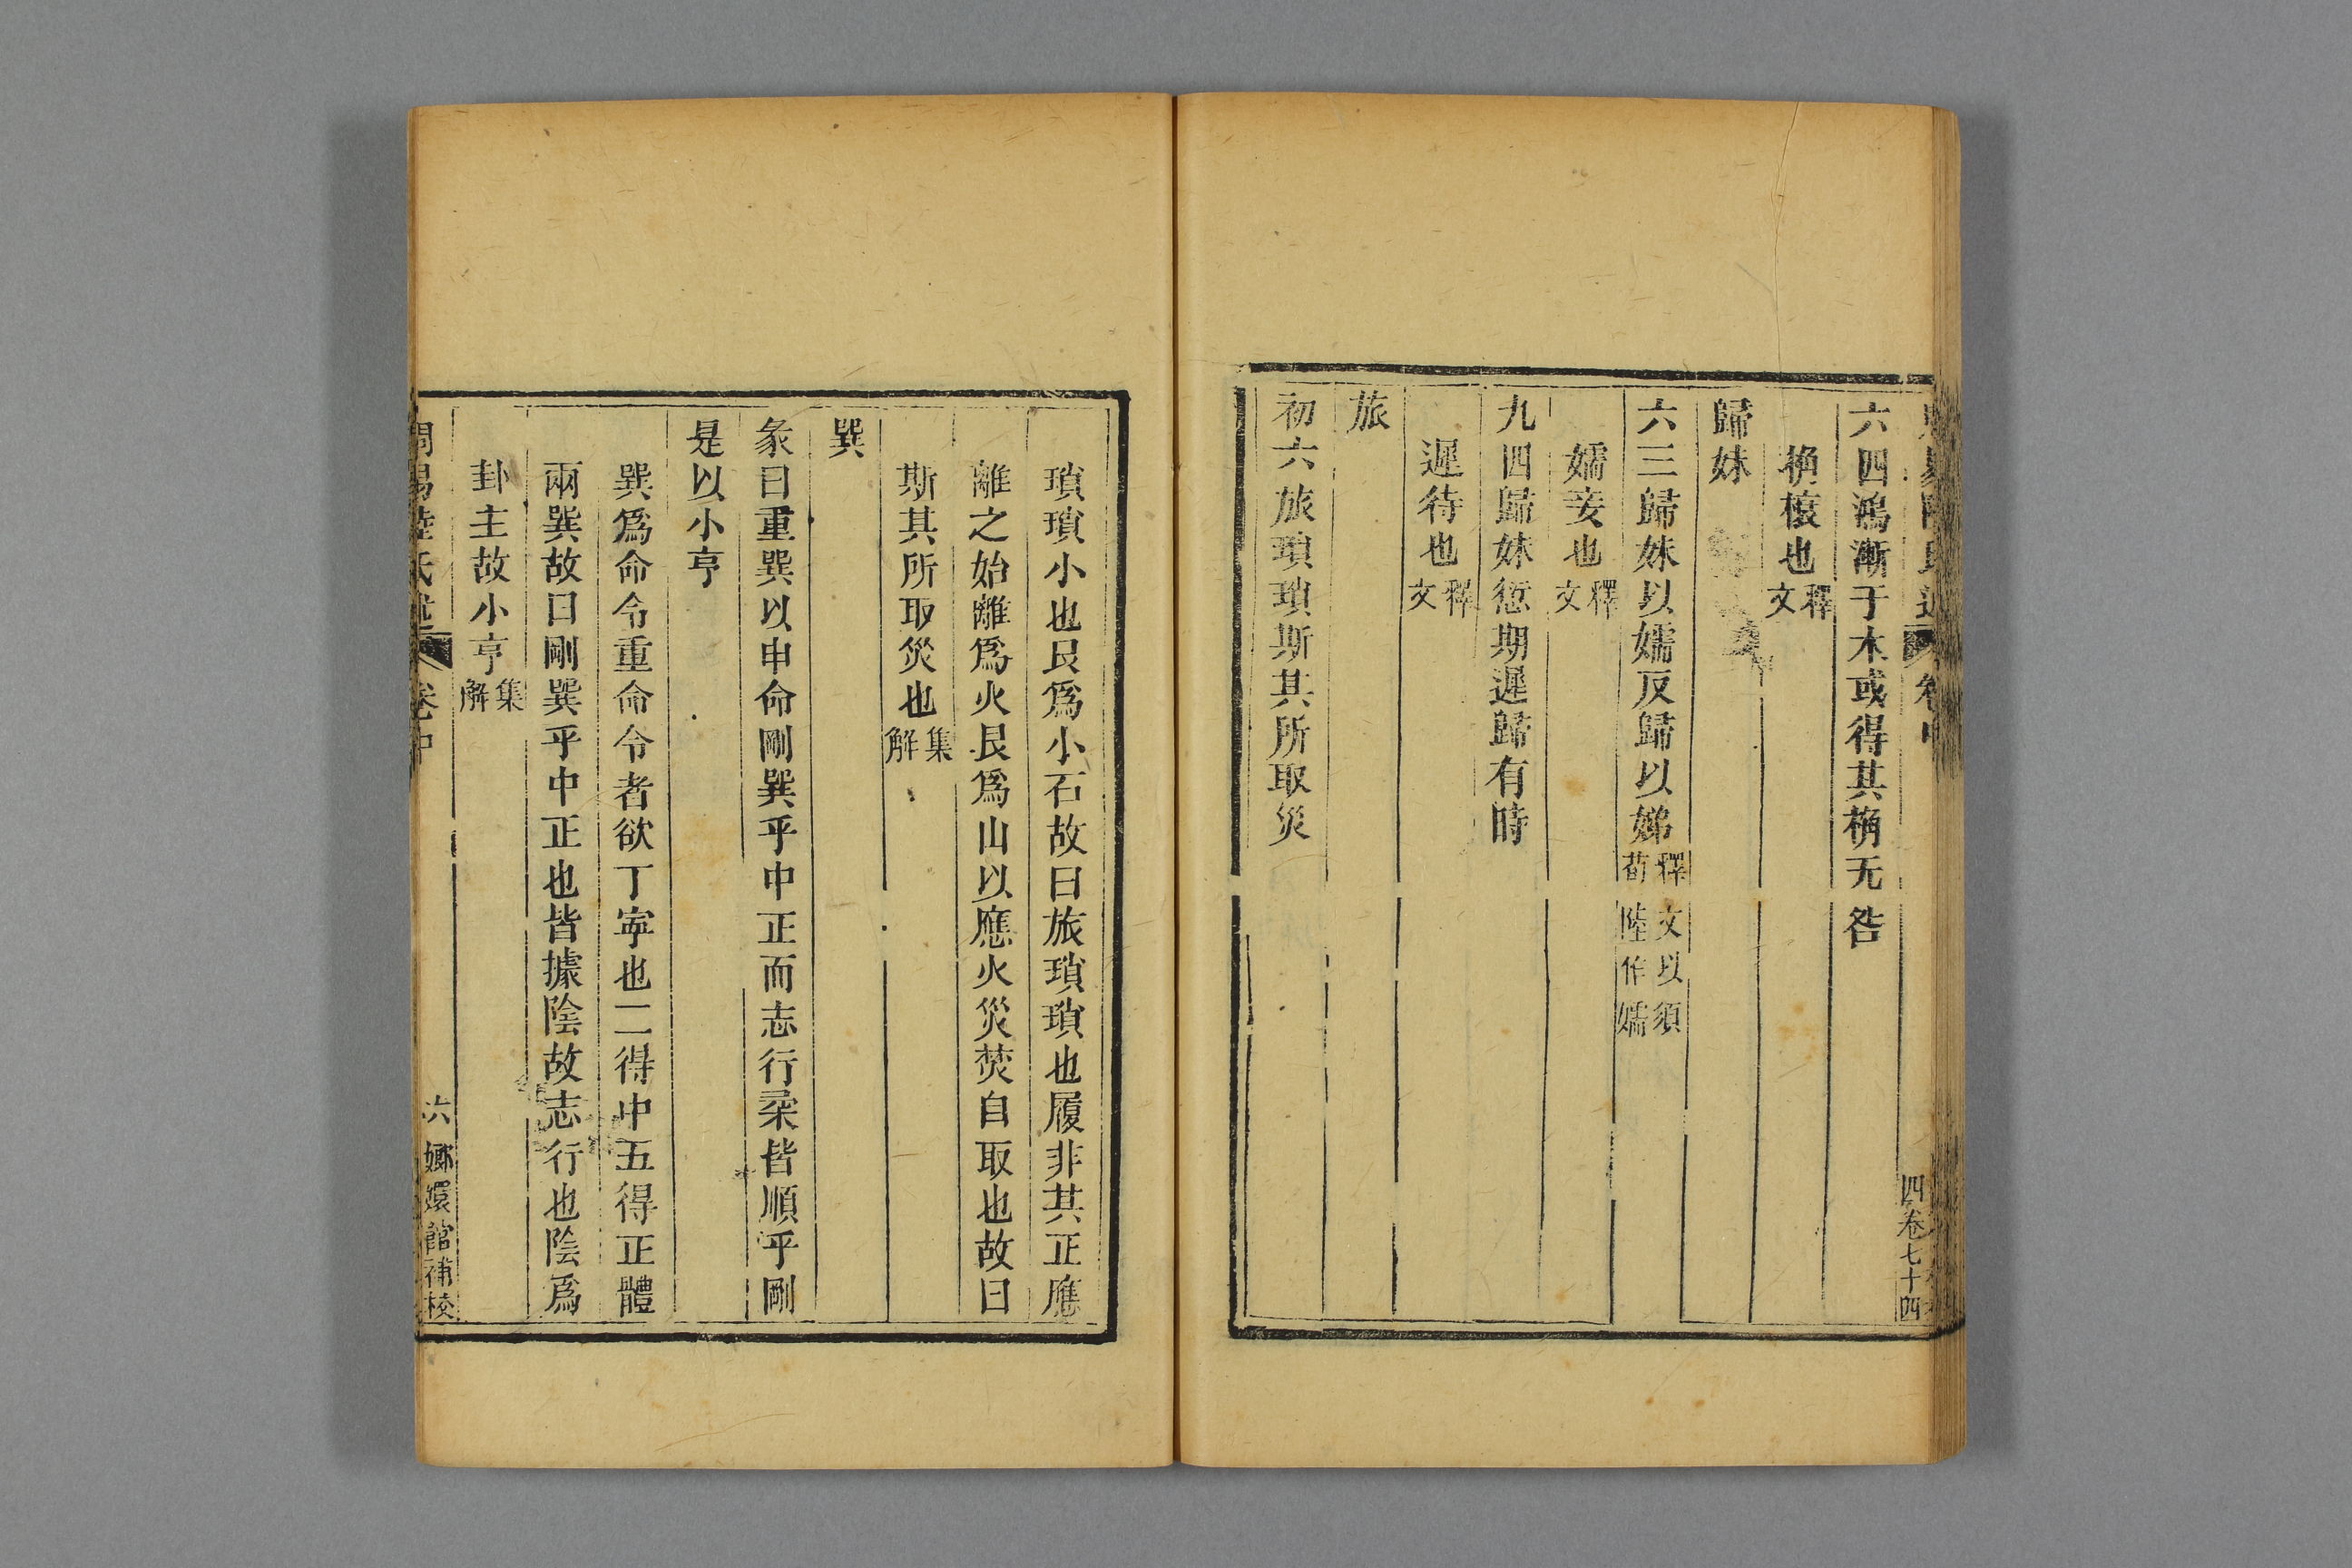 六四鴻漸于木或得其桷无咎
桷榱也釋文
歸妹
六三歸妹以嬬反歸以娣釋文以須荀陸作嬬
嬬妾也釋文
九四歸妹愆期遲歸有時
遲待也釋文
旅
初六旅瑣瑣斯其所取災
四卷七十四
瑣瑣小也艮爲小石故曰旅瑣瑣也履非其正應
離之始離爲火艮爲山以應火災焚自取也故曰
斯其所取災也集解
巽
彖曰重巽以申命剛巽乎中正而志行柔皆順乎剛
是以小亨
巽爲命令重命令者欲丁寧也二得中五得正體
兩巽故曰剛巽乎中正也皆據陰故志行也陰爲
卦主故小亨集解
周易陸氏述 卷中 六 嫏嬛館補校